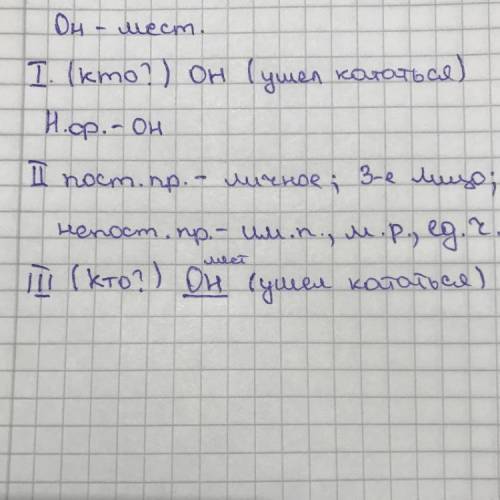 Он - мест.
I. (кто?) ОН (ушел кататься)
Н.ф.- ОН
II пост.пр.- личное; 3-е лицо;
непост.пр.- им.п., м.р., ед.ч.
мест
III (кто?) ОН (ушел кататься)